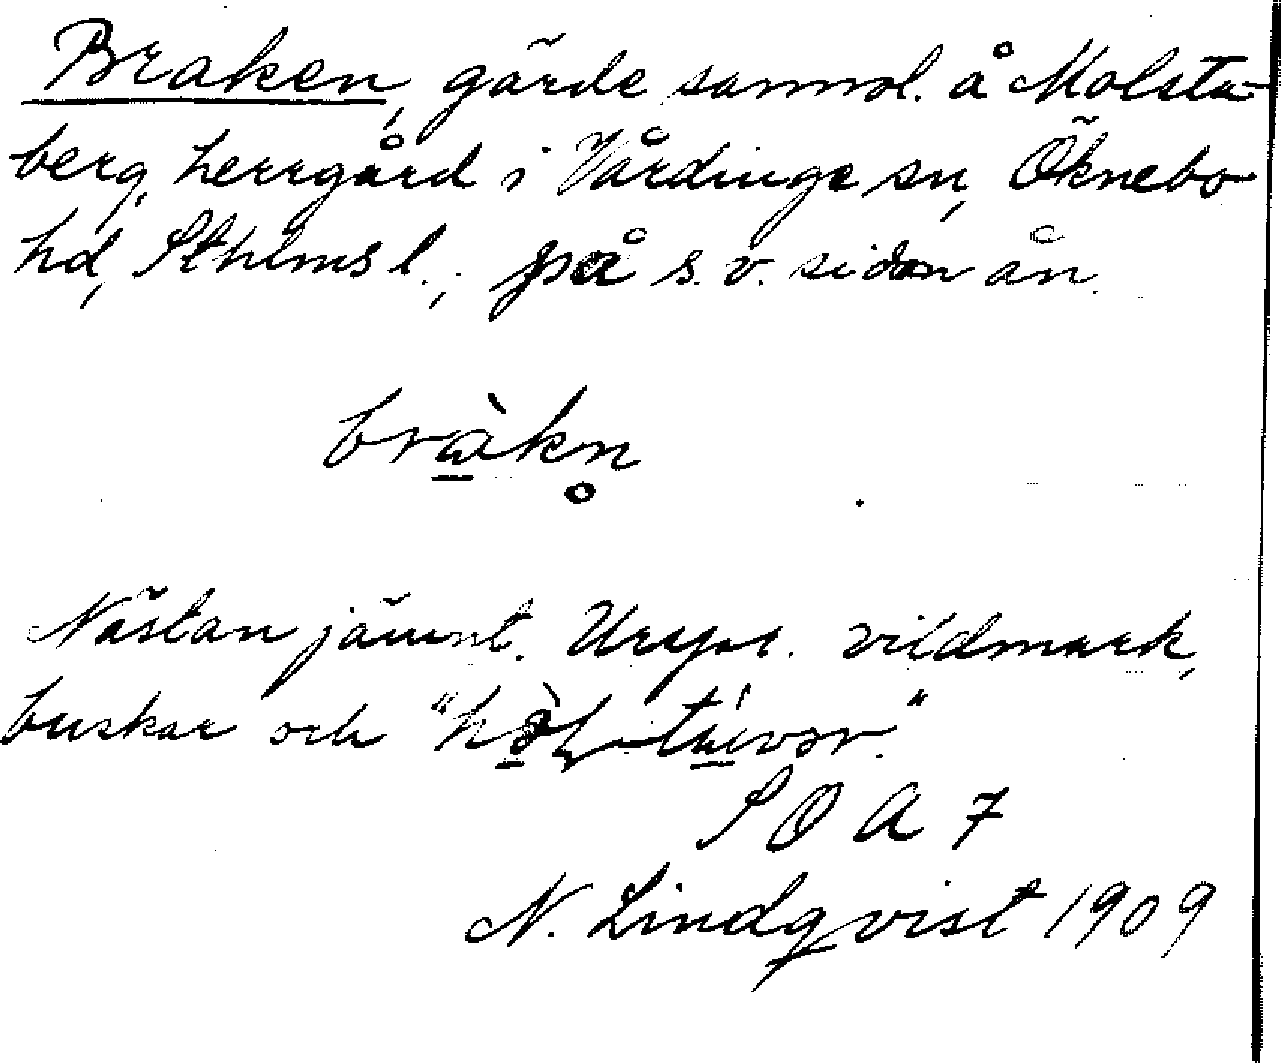 Braken, gärde sannol. å Molsta-
berg, herrgård i Vårdinge sn, Öknebo
hd, Sthlms l., på s.v. sidan ån.
bràkn̥
Nästan jämnt. Urspr. vildmark,
buskar och
S O A 7
N. Lindqvist 1909